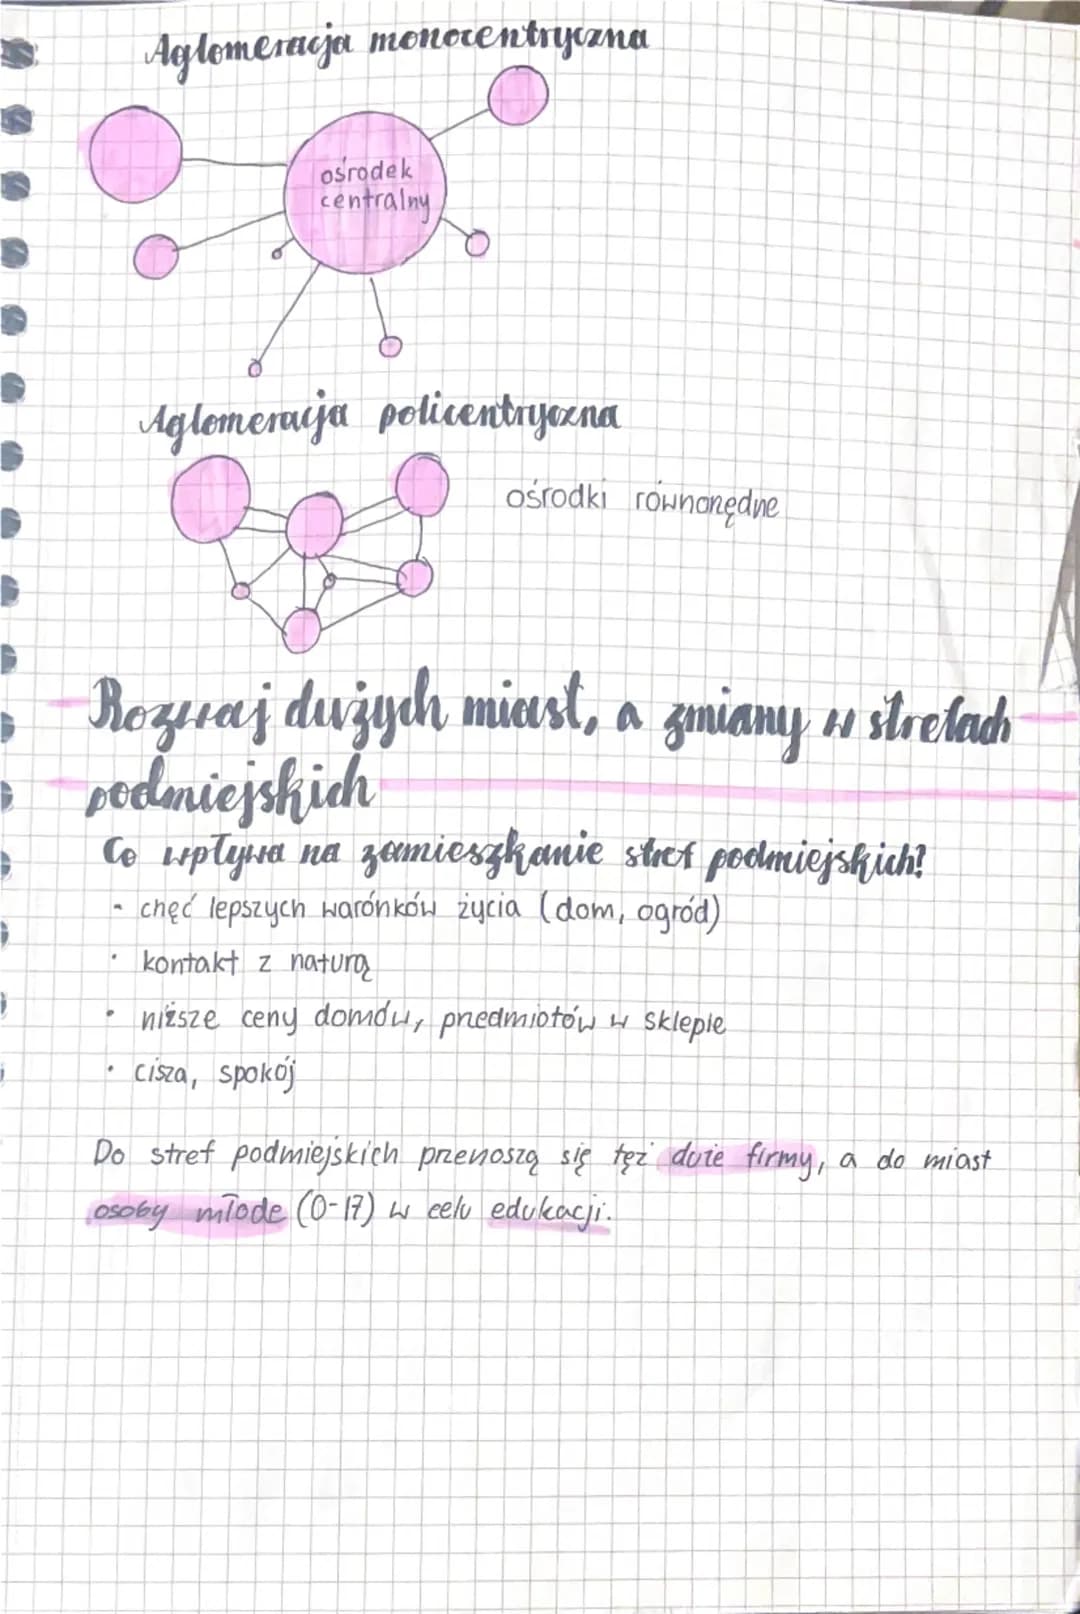 Aglomeracja monocentryczna
ośrodek
centralny
Aglomeracja policentryczna
ośrodki równorzędne
Rozwaj dużych miast, a zmiany w strefach
podmiejskich
Co wpływa na zamieszkanie stref podmiejskich?
- chęć lepszych warónków życia (dom, ogród)
• kontakt z naturą
• niższe ceny domów, przedmiotów w sklepie
• cisza, spokój
Do stref podmiejskich przenoszą się też duże firmy, a do miast
osoby młode (0-17) w celu edukacji.